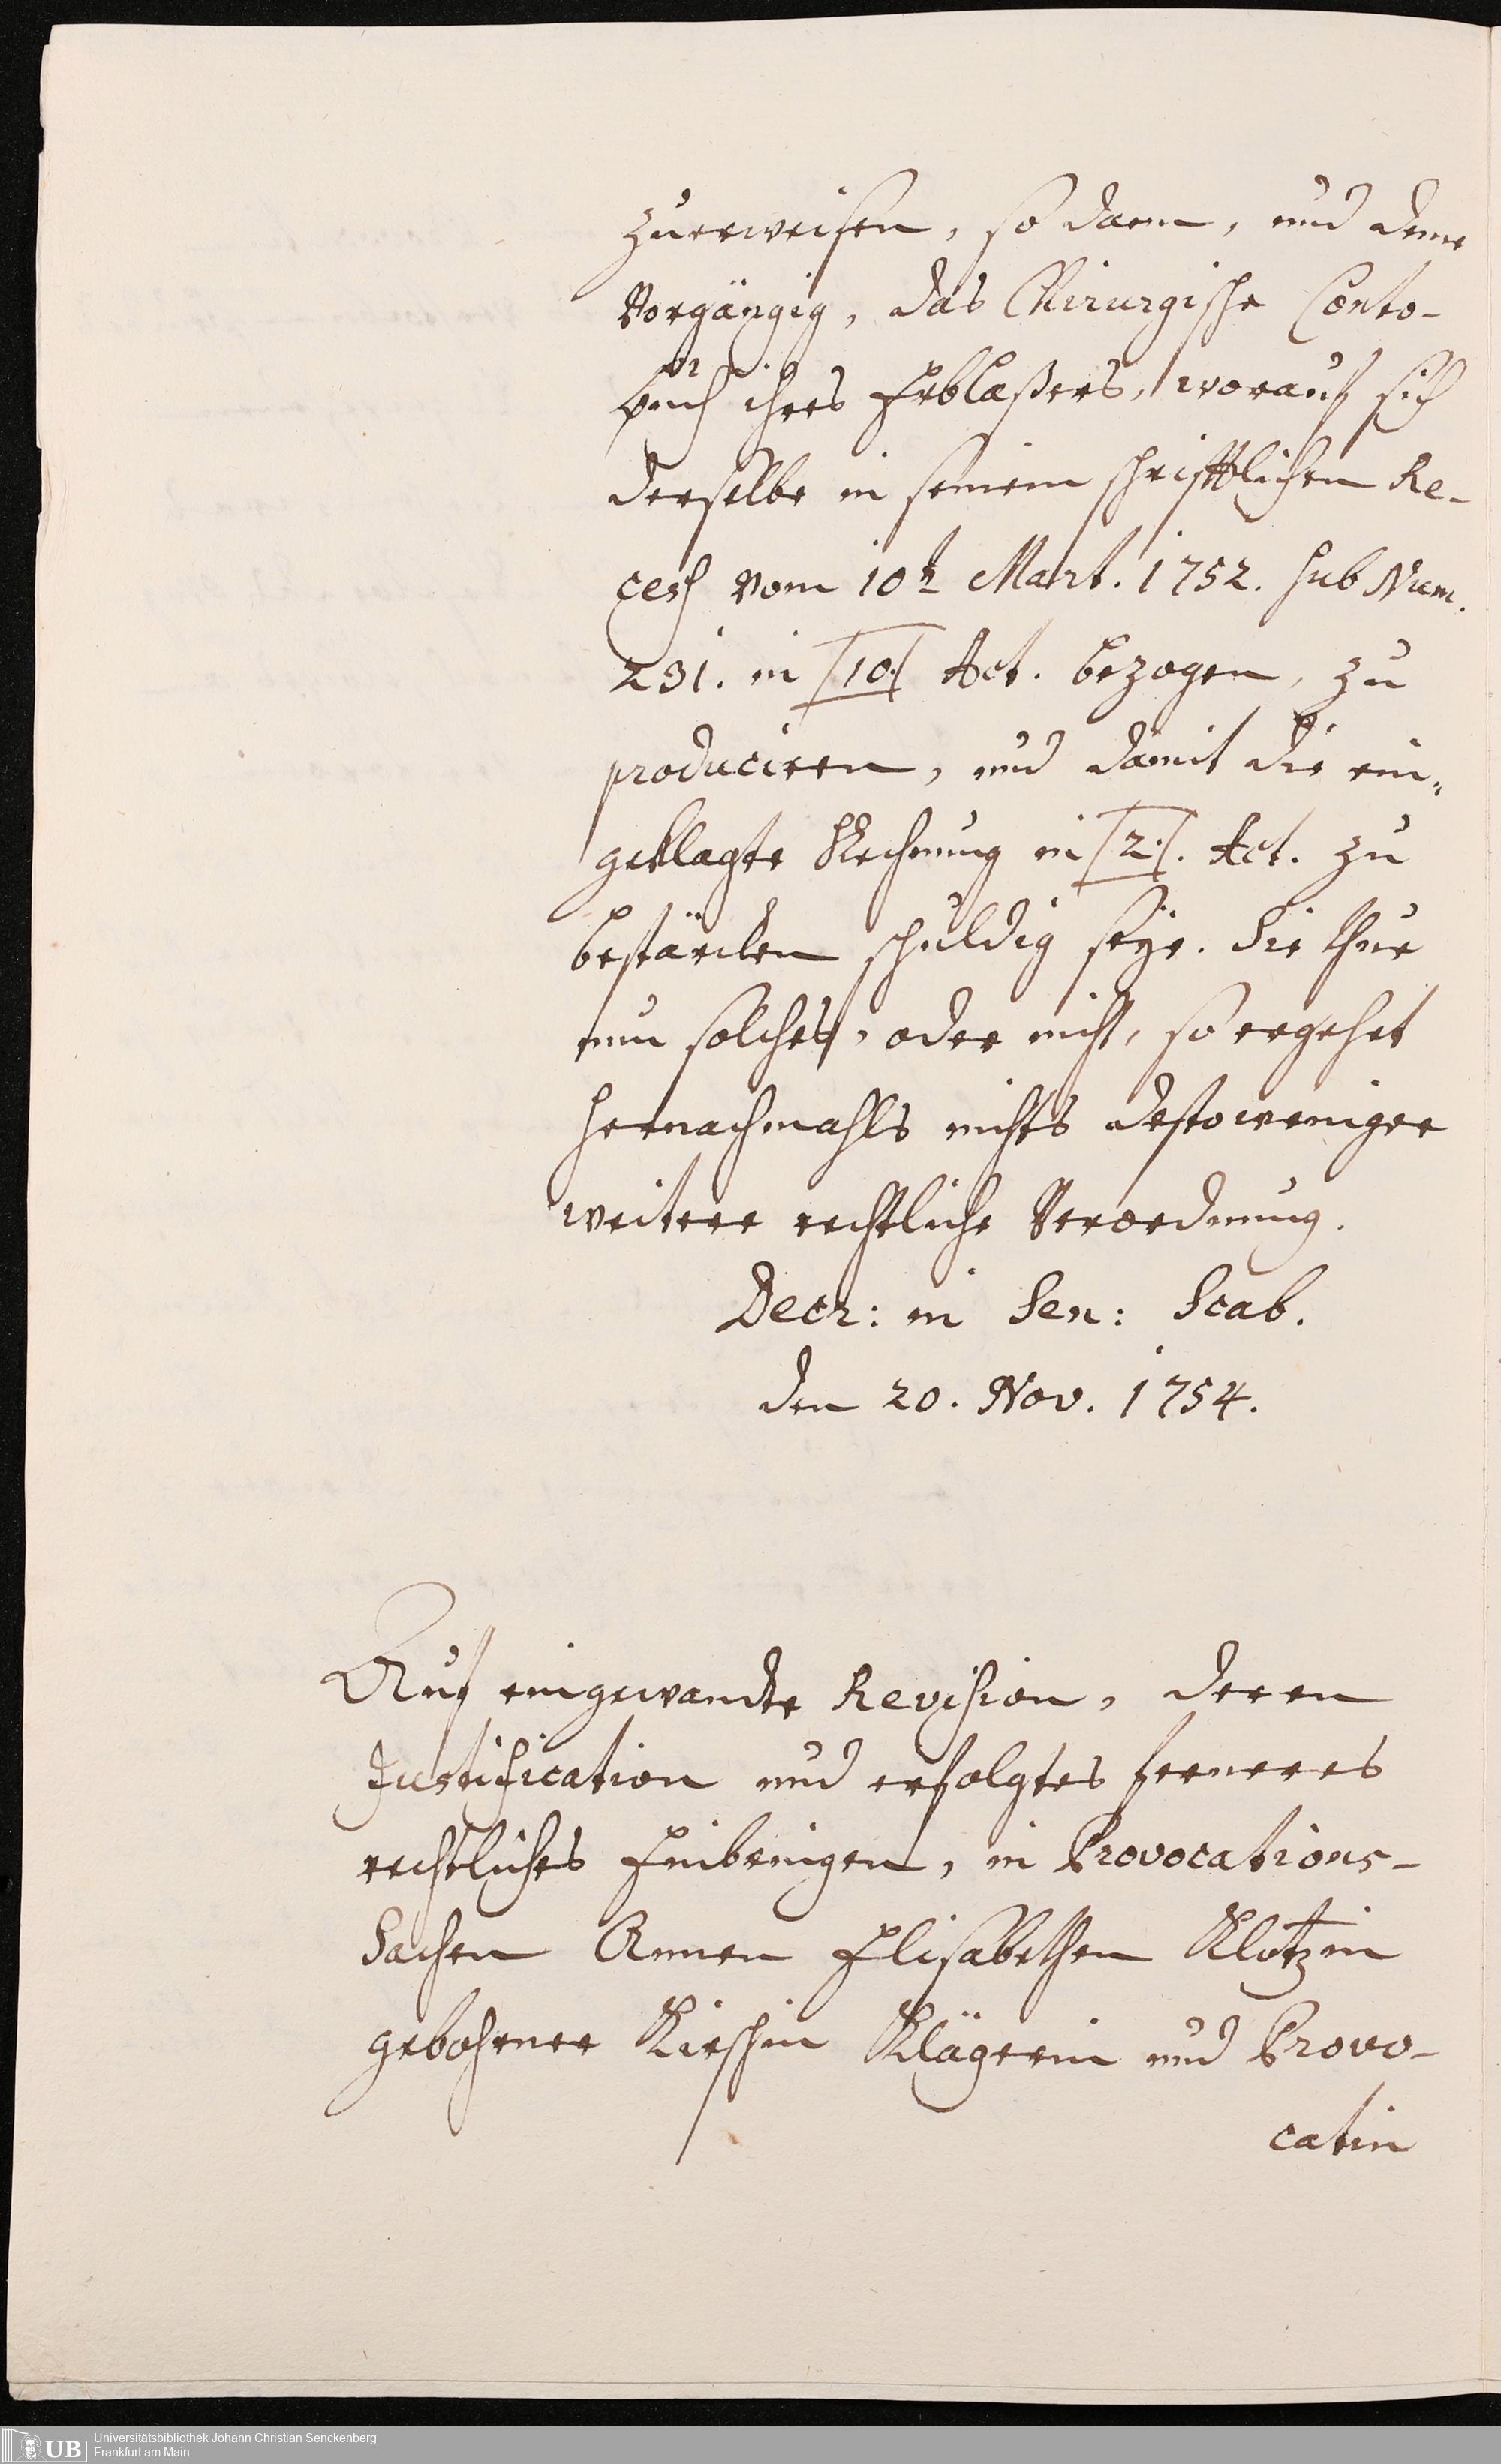 zu erweisen, so dann, und deme
Vorgängig, das Chirurgische Conto-
buch ihres Erblaßers, worauf sich
derselbe in seinem schrifftlichen Re-
cess vom 10ten Mart. 1752. sub Num.
231. in [10.] Act. bezogen, zu
produciren, und damit die ein-
geklagte Rechnung in [2.]. Act. zu
bestärcken schuldig seye. Sie thue
nun solches, oder nicht, so ergehet
hernachmahls nichts destoweniger
weitere rechtliche Verordnung.
Decr: in Sen: Scab.
den 20. Nov. 1754.
Auf eingewandte Revision, deren
Justification und erfolgtes ferneres
rechtliches Einbringen, in Provocations-
Sachen Annen Elisabethen Klotzin
gebohrner Kirschin Klägerin und Provo-
catin
UB
Universitätsbibliothek Johann Christian Senckenberg
Frankfurt am Main